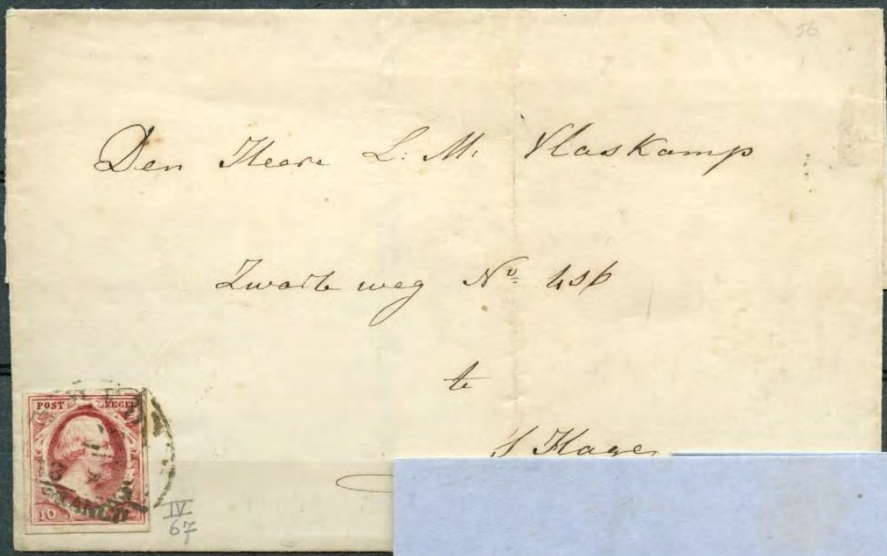 56
Den Heere L: M: Vlaskamp
Zwarte weg No 456
te
's Hage
POST ZEGEL
10
FRANCO
IV
67